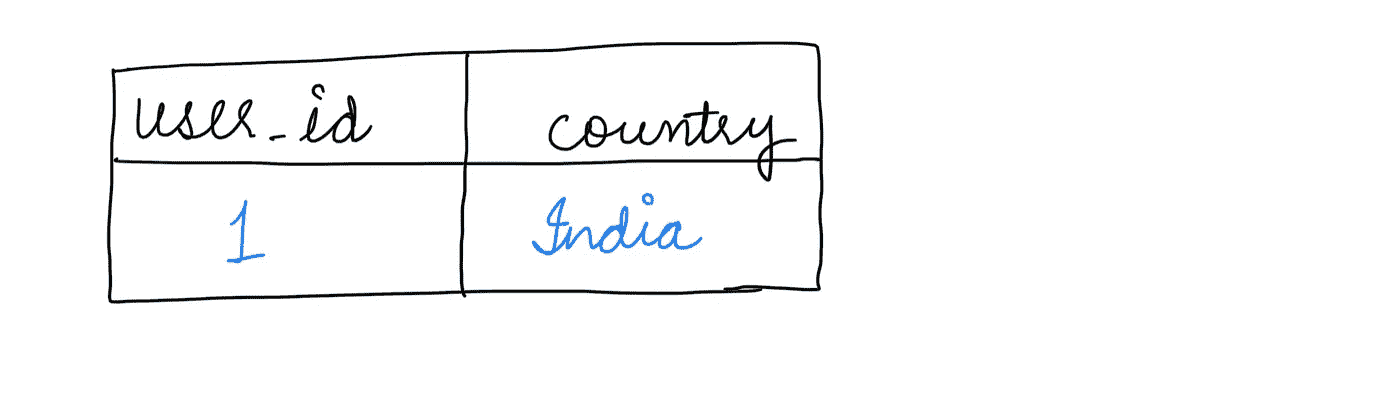 user_id country
1 India